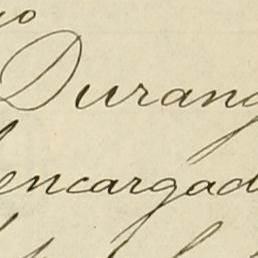 go
Durang
encargad